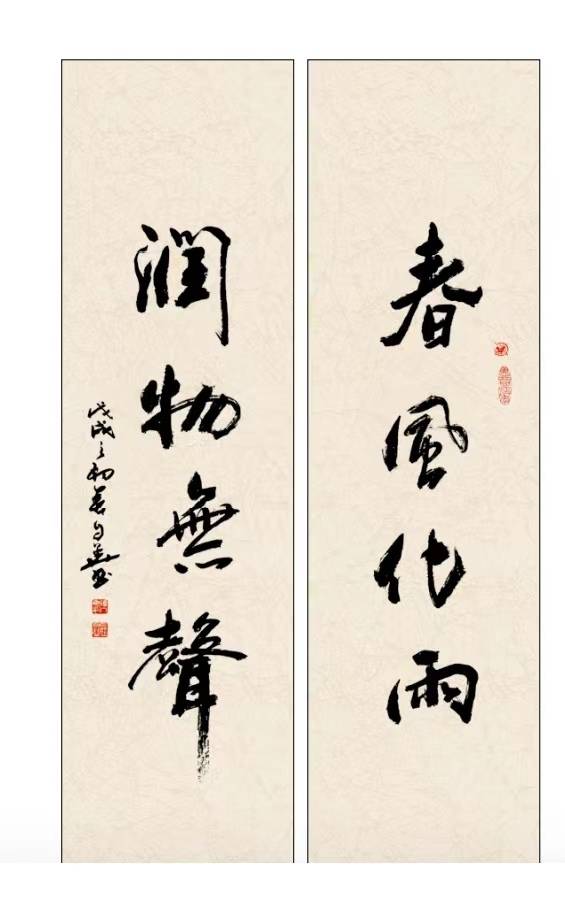 春風化雨
潤物無聲
戊戌之初春